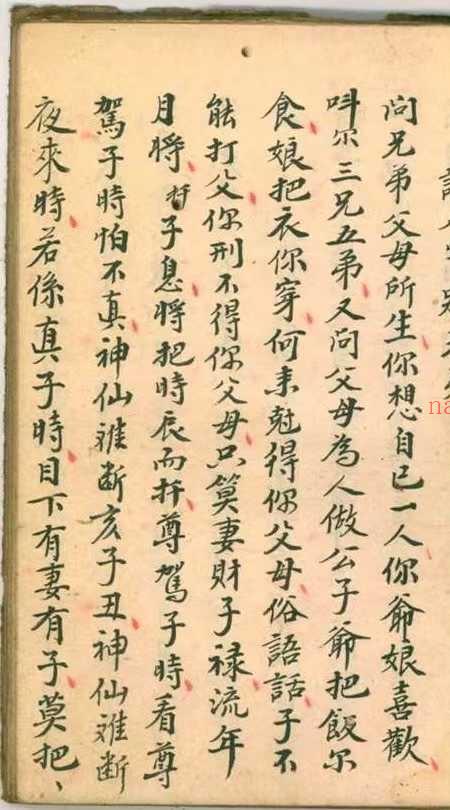 问兄弟父母所生你想自已一人你爺娘喜歡
呌尔三兄五弟又问父母為人做公子爺把飯尔
食娘把衣你穿何耒尅得你父母俗語話子不
能打父你刑不得你父母只算妻財子禄流年
月將扦子息將把時辰而扦尊駕子時看尊
駕子時怕不真神仙难断亥子丑神仙难断
夜來時若係真子時目下有妻有子莫把
na